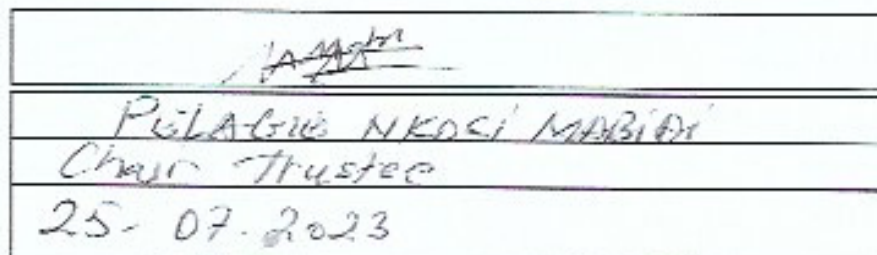 PELAGIE NKOSI MABIDI
Chair Trustee
25-07.2023